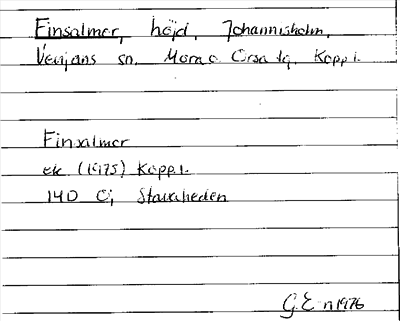 Finsalmor, höjd, Johannisholm,
Venjans sn, Mora o Orsa tg, Kopp l.
Finsalmor
ek (1975) Kopp l.
14D 0j Stackheden
G.E-n 1976